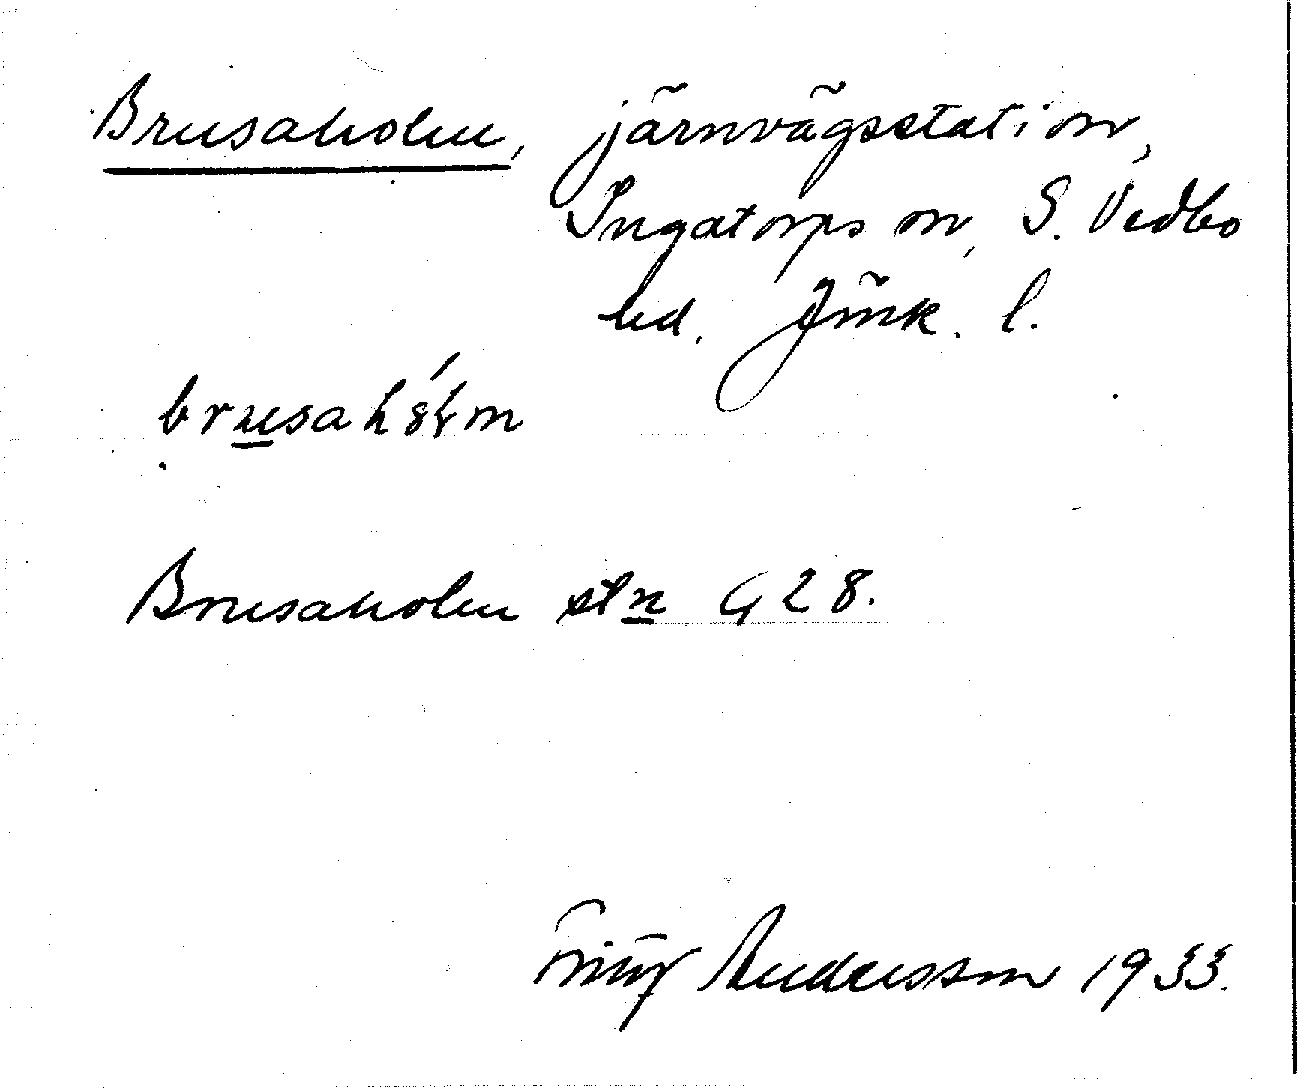 Brusaholm, järnvägsstation,
Ingatorps sn, S. Vedbo
hd. Jönk. l.
brusahólm
Brusaholm stn G 28.
Andersson 1933.